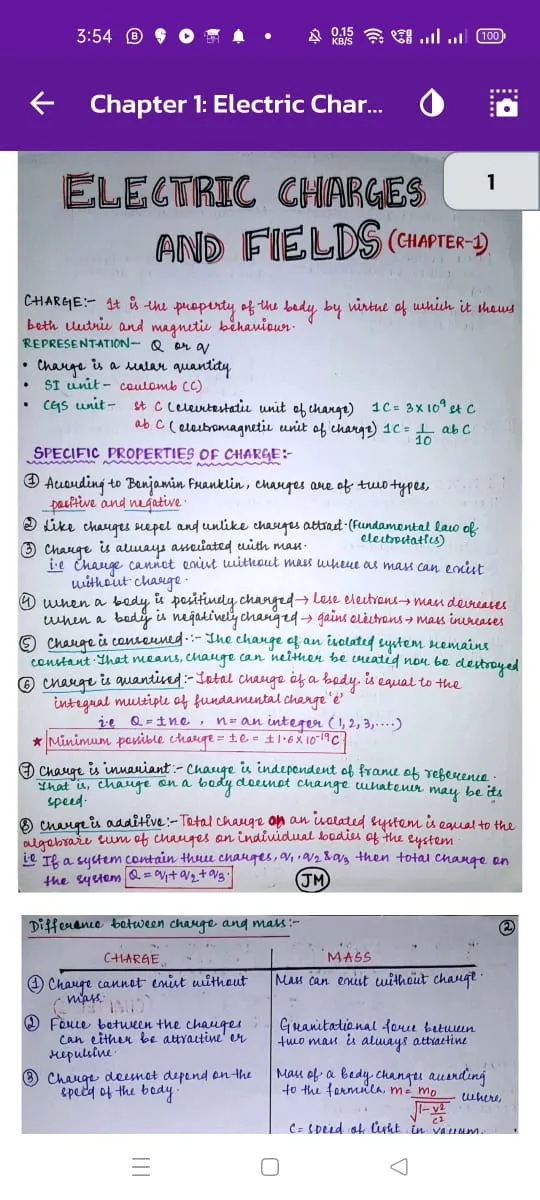 3:54
0.15 KB/S
100
Chapter 1: Electric Char...
1
ELECTRIC CHARGES
AND FIELDS (CHAPTER-1)
CHARGE:- It is the property of the body by virtue of which it shows
both electric and magnetic behaviour.
REPRESENTATION- Q or q
• Charge is a scalar quantity
• SI unit - coulomb (C)
• CGS unit- st C (electrostatic unit of charge) 1C = 3×10⁹ st C
ab C (electromagnetic unit of charge) 1C = 1/10 ab C
SPECIFIC PROPERTIES OF CHARGE:-
① According to Benjamin Franklin, charges are of two types,
positive and negative.
② Like charges repel and unlike charges attract. (Fundamental law of
electrostatics)
③ Charge is always associated with mass.
i.e Charge cannot exist without mass where as mass can exist
without charge.
④ when a body is positively charged → Lose electrons → mass decreases
when a body is negatively charged → gains electrons → mass increases
⑤ Charge is conserved:- The charge of an isolated system remains
constant. That means, charge can neither be created nor be destroyed
⑥ Charge is quantised:- Total charge of a body is equal to the
integral multiple of fundamental charge 'e'
i.e Q = ± ne , n = an integer (1,2,3,....)
★ Minimum possible charge = ±e = ±1.6×10⁻¹⁹C
⑦ Charge is invariant:- Charge is independent of frame of reference.
That is, charge on a body doesnot change whatever may be its
speed.
⑧ Charge is additive:- Total charge on an isolated system is equal to the
algebraic sum of charges on individual bodies of the system
i.e If a system contain three charges, q₁, q₂ & q₃ then total charge on
the system Q = q₁+q₂+q₃.
JM
Difference between charge and mass:-
②
CHARGE MASS
① Charge cannot exist without Mass can exist without charge.
mass.
② Force between the charges Gravitational force between
can either be attractive or two mass is always attractive
repulsive.
③ Charge doesnot depend on the Mass of a body changes according
speed of the body. to the formula, m = m₀/√(1-v²/c²) where,
C = speed of light in vacuum.